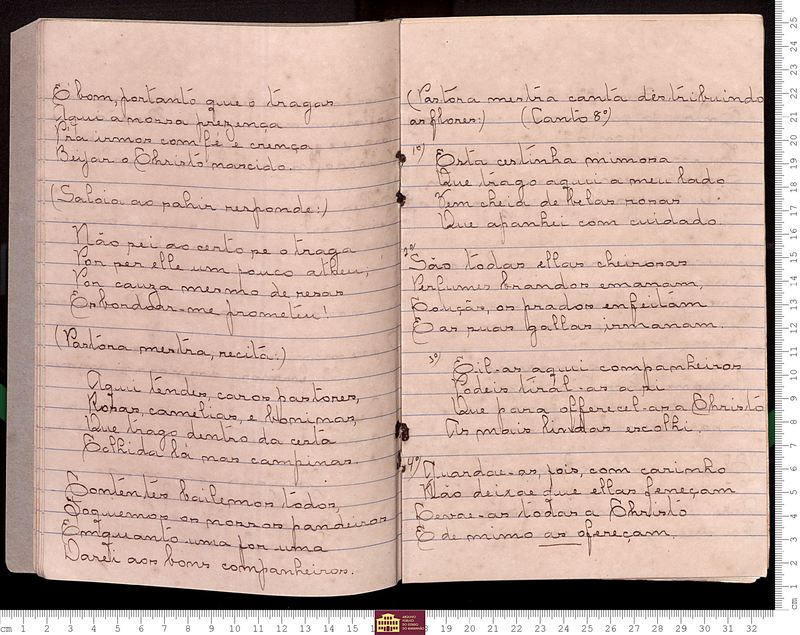 É bom, portanto que o tragas
Aqui a nossa prezença
Prá irmos com fé e crença
Beijar o Christo nascido.
(Saloia ao sahir responde:)
Não sei ao certo se o traga
Por ser elle um pouco atheu,
Por cauza mesmo de rezas
Esbordoar-me prometeu!
(Pastora mestra, recita:)
Aqui tendes, caros pastores,
Rosas, camelias, e boninas,
Que trago dentro da cesta
Colhida lá nas campinas.
Contentes bailemos todos,
Toquemos os nossos pandeiros
Emquanto uma por uma
Darei aos bons companheiros.
(Pastora mestra canta destribuindo
as flores:) (Canto 8º)
1º) Esta cestinha mimosa
Que trago aqui a meu lado
Vem cheia de belas rosas
Que apanhei com cuidado.
2º) São todas ellas cheirosas
Perfumes brandos emanam,
os prados enfeitam
E as suas gallas irmanam.
3º) Eil-as aqui companheiros
Podeis tiral-as a si
Que para offerecel-as a Christo
As mais lindas escolhi.
4º) Guardae-as, pois, com carinho
Não deixae que ellas feneçam
Levae-as todas a Christo
E de mimo as ofereçam.
cm 1 2 3 4 5 6 7 8 9 10 11 12 13 14 15 19 20 21 22 23 24 25 26 27 28 29 30 31 32
ARQUIVO PÚBLICO DO ESTADO DO MARANHÃO
cm 1 2 3 4 5 6 7 8 9 10 11 12 13 14 15 16 17 18 19 20 21 22 23 24 25